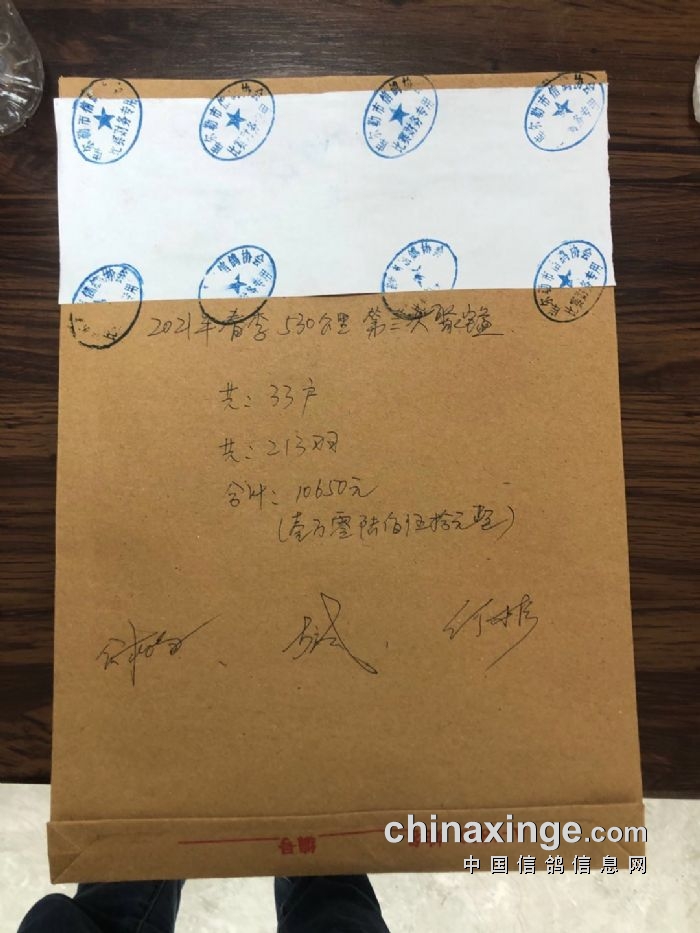 库尔勒市信鸽协会
比赛财务专用
2021年春季530公里第三关聚宝盆
共:33户
共:213羽
合计:10650元
(壹万零陆佰伍拾元整)
编号
chinaxinge.com
中国信鸽信息网